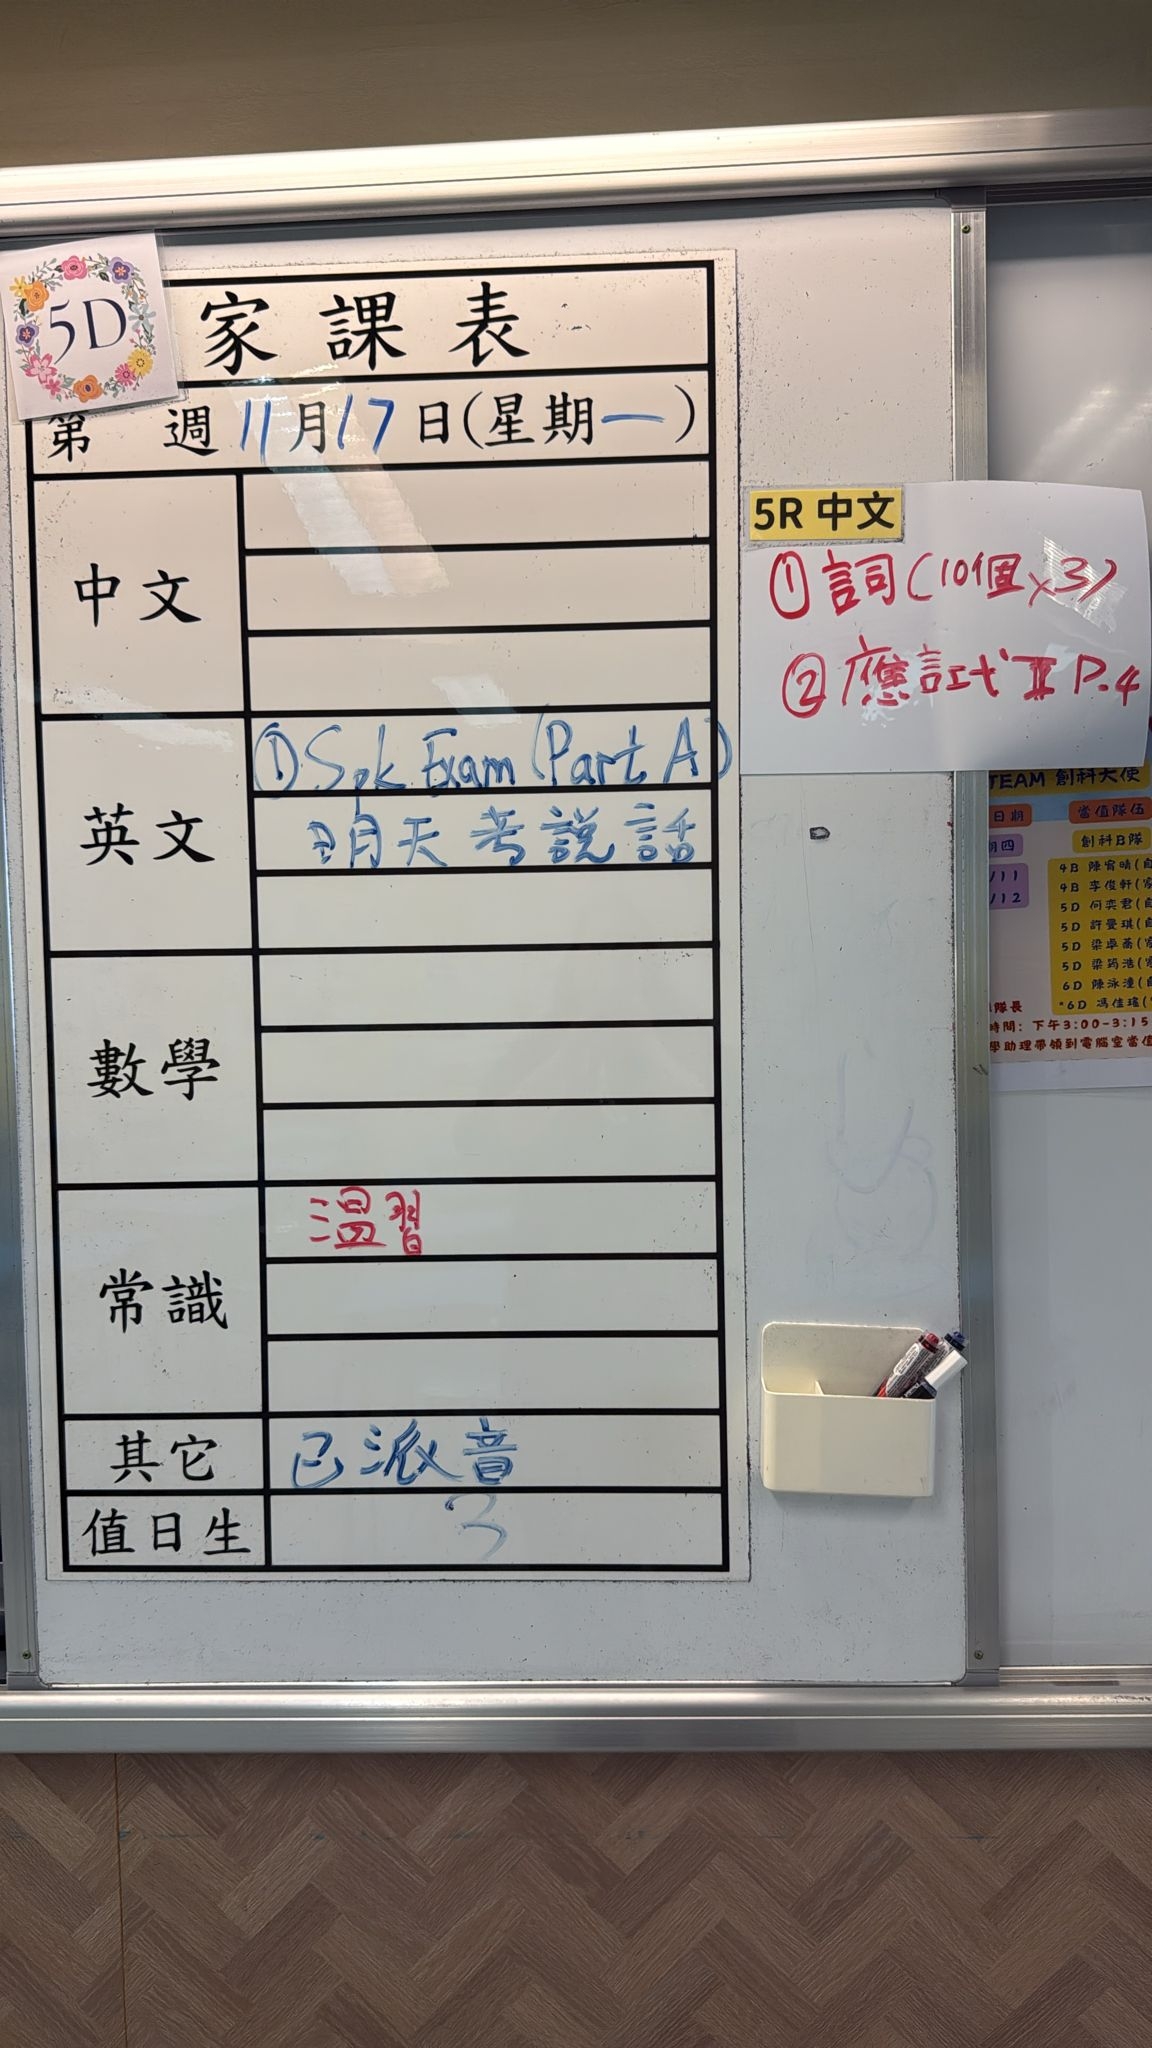 5D
家課表
第 週 11月17日(星期一)
中文
英文
①Spk Exam (Part A)
明天考說話
數學
常識
温習
其它
已派音
值日生
3
5R 中文
①詞(10個x3)
②應試式 II P.4
TEAM 創科大使
日期
當值隊伍
期四
創科B隊
/11
/12
4B 陳宥晴(
4B 李俊軒(
5D 何奕君(
5D 許曼琪(
5D 梁卓喬(
5D 梁筠浩(
6D 陳泳潼(
*6D 馮佳瑤(
隊長
時間：下午3:00-3:15
學助理帶領到電腦室當值